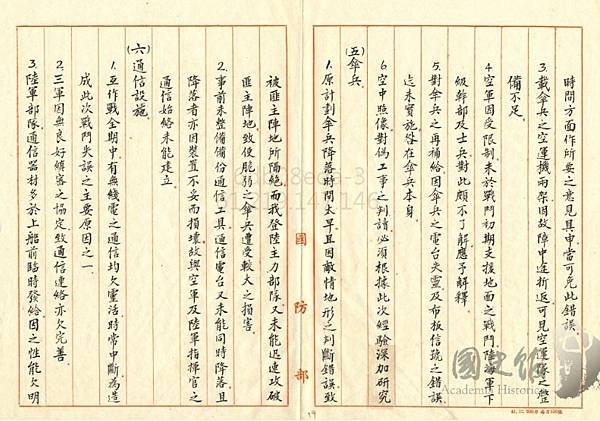 時間方面作所要之意見具申當可免此錯誤
3.載傘兵之空運機兩架因故障中途折返可見空運隊之整
備不足
4.空軍因受限制未於戰鬥初期支援地面之戰鬥陸海軍下
級幹部及士兵對此頗不了解應予解釋
5.對傘兵之再補給因傘兵之電台失靈及布板信號之錯誤
迄未實施咎在傘兵本身
6.空中照像對偽工事之判讀必須根據此次經驗深加研究
(五)傘兵
1.原計劃傘兵降落時間太早且因敵情地形之判斷錯誤致
國防部
被匪主陣地所隔絕而我登陸主力部隊又未能迅速攻破
匪主陣地致使脆弱之傘兵遭受較大之損害
2.事前未整備備份通信工具通信電台又未能同時降落且
降落者亦因裝置不妥而損壞故與空軍及陸軍指揮官之
通信始終未能建立
(六)通信設施
1.在作戰全期中有無綫電之通信均欠靈活時常中斷為造
成此次戰鬥失誤之主要原因之一
2.三軍因無良好縝密之協定致通信連絡亦欠完善
3.陸軍部隊通信器材多於上船前臨時發給因之性能欠明
國史館
Academia Historica